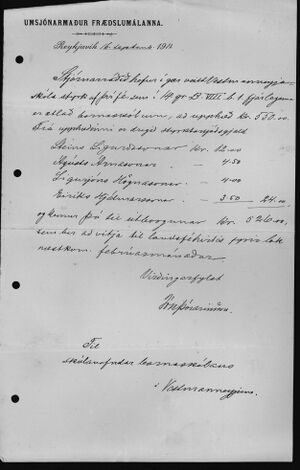 UMSJÓNARMAÐUR FRÆÐSLUMÁLANNA.
Reykjavík 16. september 191
Stjórnarráðið hefur í gær veitt Vestmannaeyja-
skóla styrk af fje sem í 14. gr. B. VIII. b. 1 fjárlaganna
er ætlað barnaskólum, að upphæð kr. 530.00
Frá upphæðinni er dregið
Steins Sigurðssonar kr. 12.00
Ágústs Árnasonar — 4.50
Sigurjóns Högnasonar — 4.00
Eiríks Hjálmarssonar — 3.50
og kemur því til útborgunar kr.
sem ber að vitja til landsfjehirðis fyrir lok
næstkom. febrúarmánaðar.
Virðingarfyllst
Jón Þórarinsson
Til
skólanefndar barnaskólans
í Vestmannaeyjum.